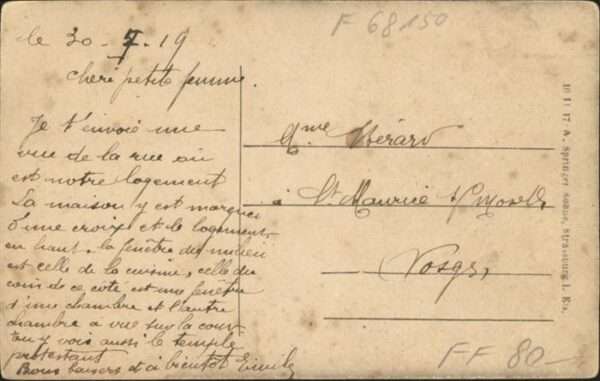 F 68150
le 30 - 7 - 19
cheri petite femme.
Je t'envoie une
vue de la rue ou
est notre logement
La maison y est marquée
d'une croix et le logement,
en haut. la fenêtre du milieu
est celle de la cuisine, celle du
coin de ce coté est une fenêtre
d'une chambre et l'autre
chambre a vue sur la cour
tu y vois aussi le temple
protestant
Bons baisers et à bientôt Emile
Mme Hérard
à St Maurice s/ Moselle
Vosges,
10 11 17. A. Springer Söhne, Strassburg i. Els.
FF 80-